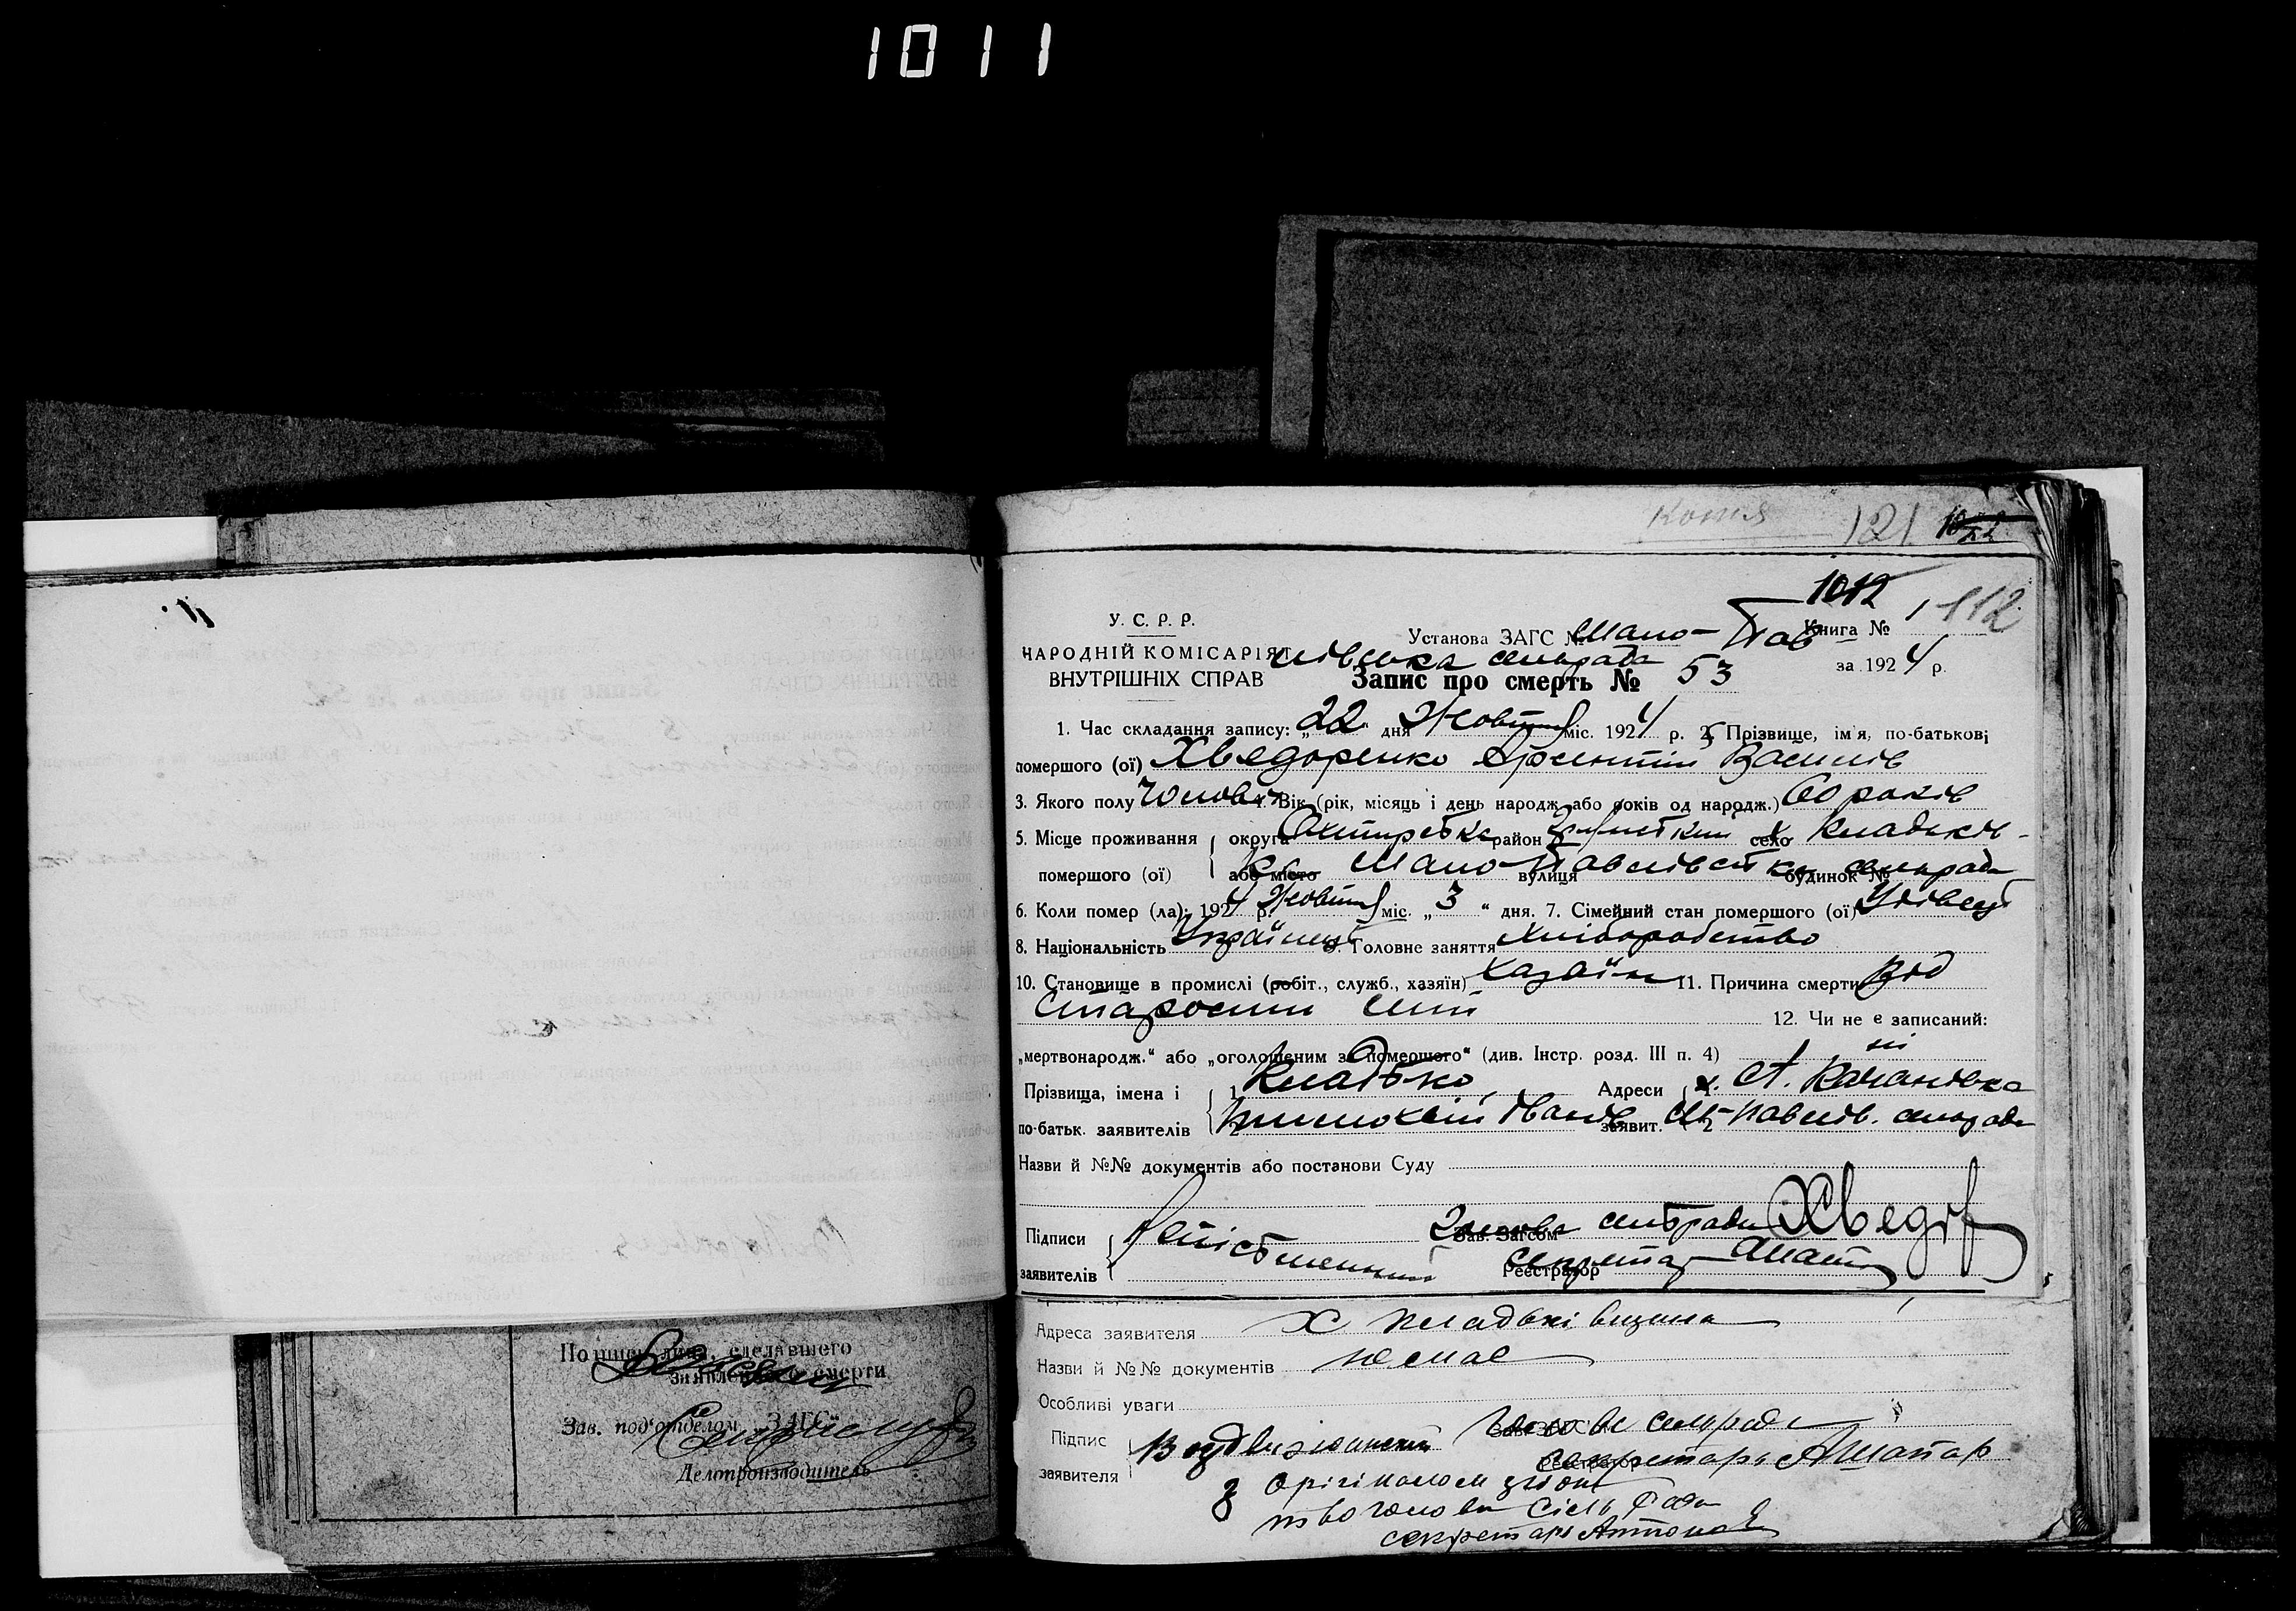 1011
Копия 121
1012
У. С. Р. Р.
Установа ЗАГС № Мало-Пав Книга № 112
НАРОДНІЙ КОМІСАРІЯТ
лівська сільрада
ВНУТРІШНІХ СПРАВ Запис про смерть № 53 за 1924 р.
1. Час складання запису: „22" дня Жовтня міс. 1924 р. 2. Прізвище, ім'я, по-батькові
помершого (ої) Хведоренко Арсентій Василів
3. Якого полу Чолов 4. Вік (рік, місяць і день народж. або років од народж.) 60 років
5. Місце проживання округа Охтирська район село Кладьків-
помершого (ої) або місто ка Мало-Павлівської вулиця будинок № сільради
6. Коли помер (ла): 1924 р. Жовтня міс. „3" дня. 7. Сімейний стан помершого (ої) Удівець
8. Національність Українець 9. Головне заняття Хліборобство
10. Становище в промислі (робіт., служб., хазяїн) хазяїн 11. Причина смерти Від
старости літ 12. Чи не є записаний:
„мертвонародж." або „оголошеним за помершого" (див. Інстр. розд. III п. 4) ні
Прізвища, імена і 1 Кладько Адреси х. А. Качанівка
по-батьк. заявителів 2 Іванів заявит. 2 М-Павлів. сільради
Назви й №№ документів або постанови Суду
Підписи Зав. Загсом Голова сільради Хведор
заявителів Реєстратор Секретар
Адреса заявителя Х Кладьківщина
Назви й №№ документів немає
Особливі уваги
Підпис Воздвижанский Голова сільради
заявителя Реєстратор секретарь АШапар
З Орігіналом згідно
тво голови Сіль Ради
секретарь
Подпись лица, сделавшего
заявление о смерти
Зав. под'отделом „ЗАГС"
Делопроизводитель